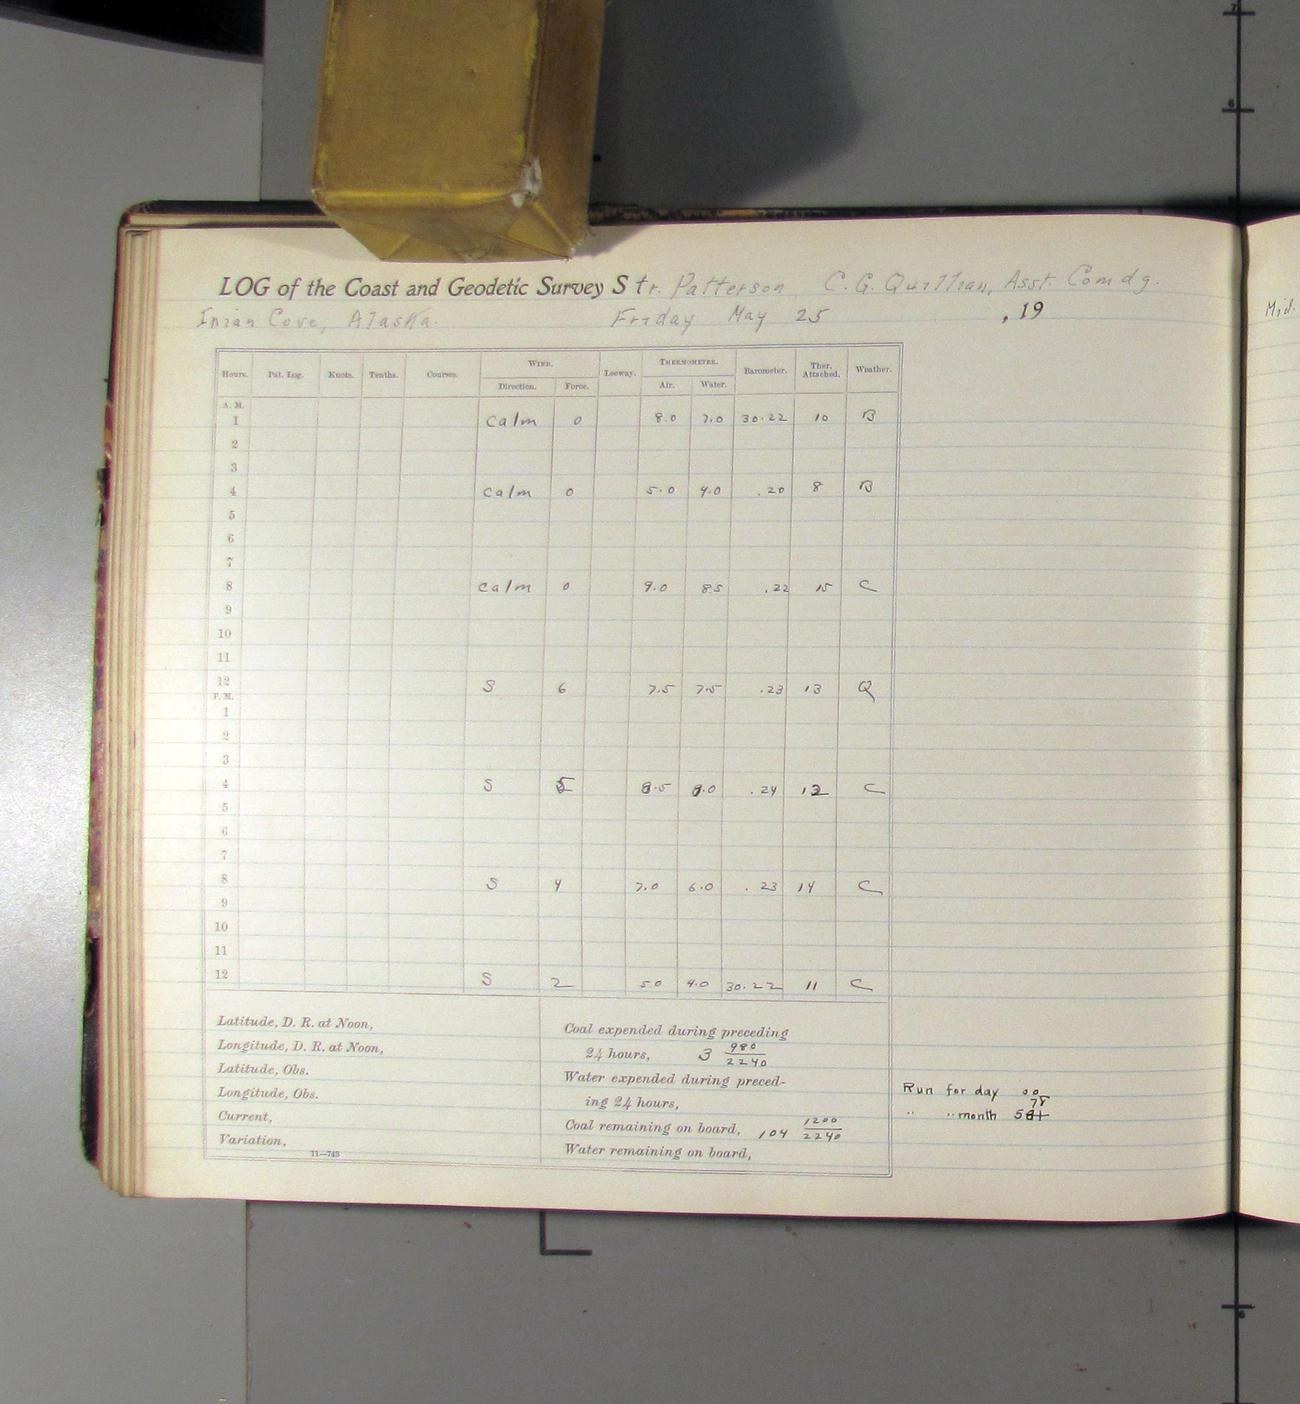 LOG of the Coast and Geodetic Survey Str. Patterson C. G. Quillian, Asst. Comdg.
Inian Cove, Alaska. Friday May 25 , 19
Hours. Pat. Log. Knots. Tenths. Courses. WIND. Leeway. THERMOMETER. Barometer. Ther. Attached. Weather.
Direction. Force. Air. Water.
A. M.
1 calm 0 8.0 7.0 30.22 10 B
2
3
4 calm 0 5.0 4.0 .20 8 B
5
6
7
8 calm 0 9.0 8.5 .22 15 C
9
10
11
12 S 6 7.5 7.5 .23 13 Q
P. M.
1
2
3
4 S 5 8.5 8.0 .24 12 C
5
6
7
8 S 4 7.0 6.0 .23 14 C
9
10
11
12 S 2 5.0 4.0 30.22 11 C
Latitude, D. R. at Noon,
Longitude, D. R. at Noon,
Latitude, Obs.
Longitude, Obs.
Current,
Variation,
11—743
Coal expended during preceding
24 hours, 3 980/2240
Water expended during preced-
ing 24 hours,
Coal remaining on board, 104 1200/2240
Water remaining on board,
Run for day 00
" " month
Mid.